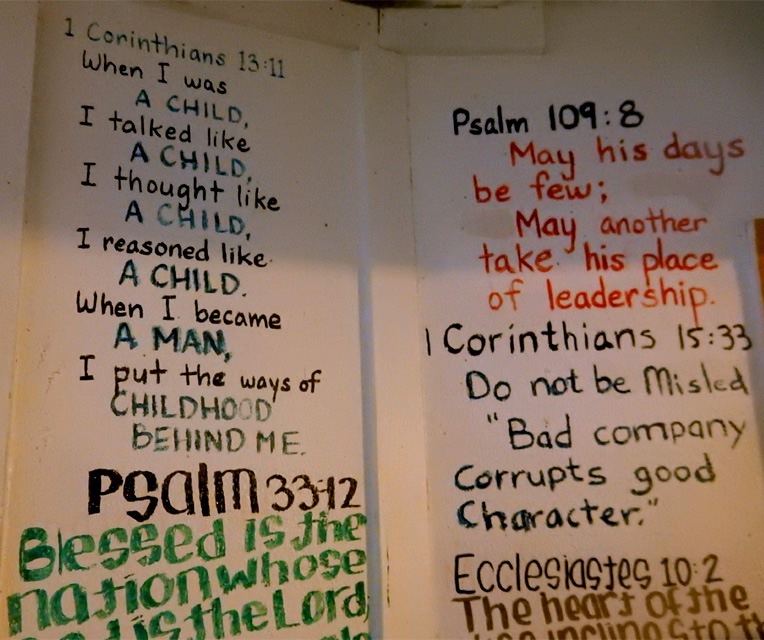 1 Corinthians 13:11
When I was
A CHILD,
I talked like
A CHILD,
I thought like
A CHILD,
I reasoned like
A CHILD.
When I became
A MAN,
I put the ways of
CHILDHOOD
BEHIND ME.
Psalm 33:12
Blessed is the
nation whose
is the Lord,
Psalm 109:8
May his days
be few;
May another
take his place
of leadership.
1 Corinthians 15:33
Do not be Misled
"Bad company
Corrupts good
Character."
Ecclesiastes 10:2
The heart of the